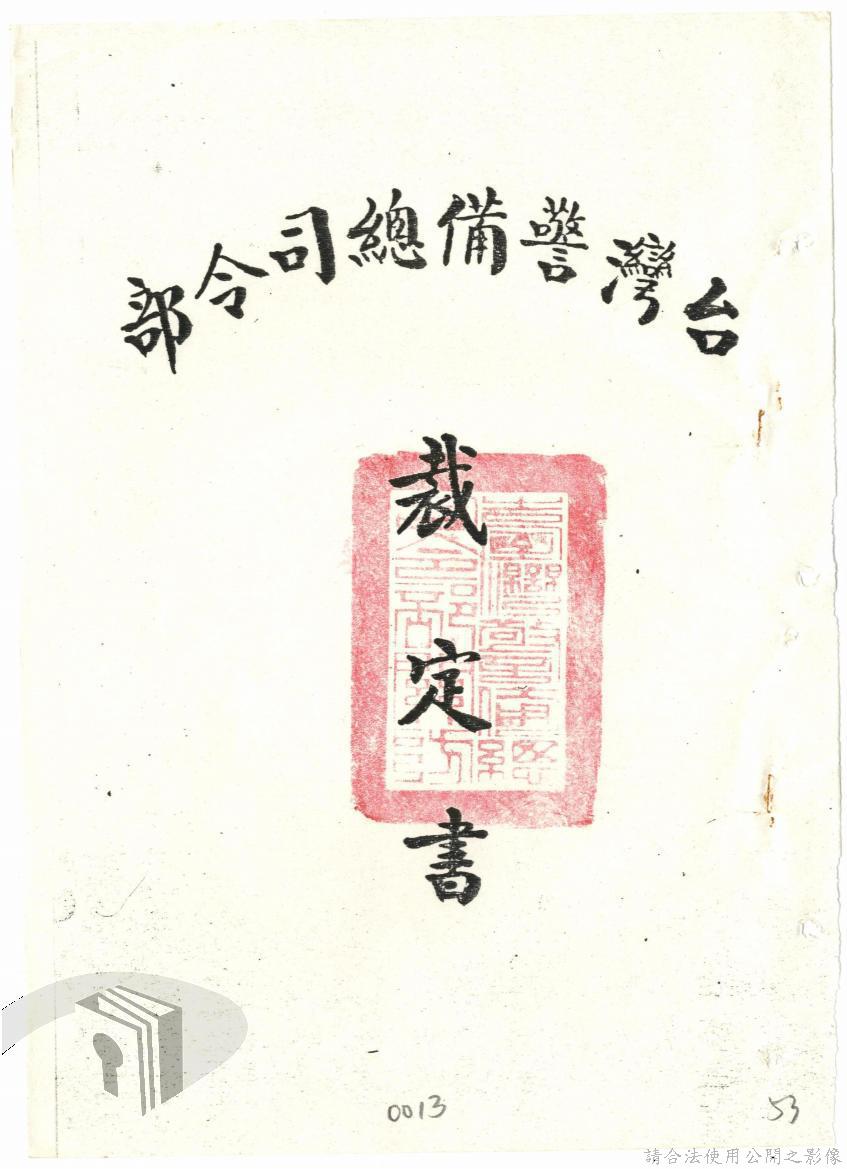 台灣警備總司令部
裁定書
0013
53
請合法使用公開之影像